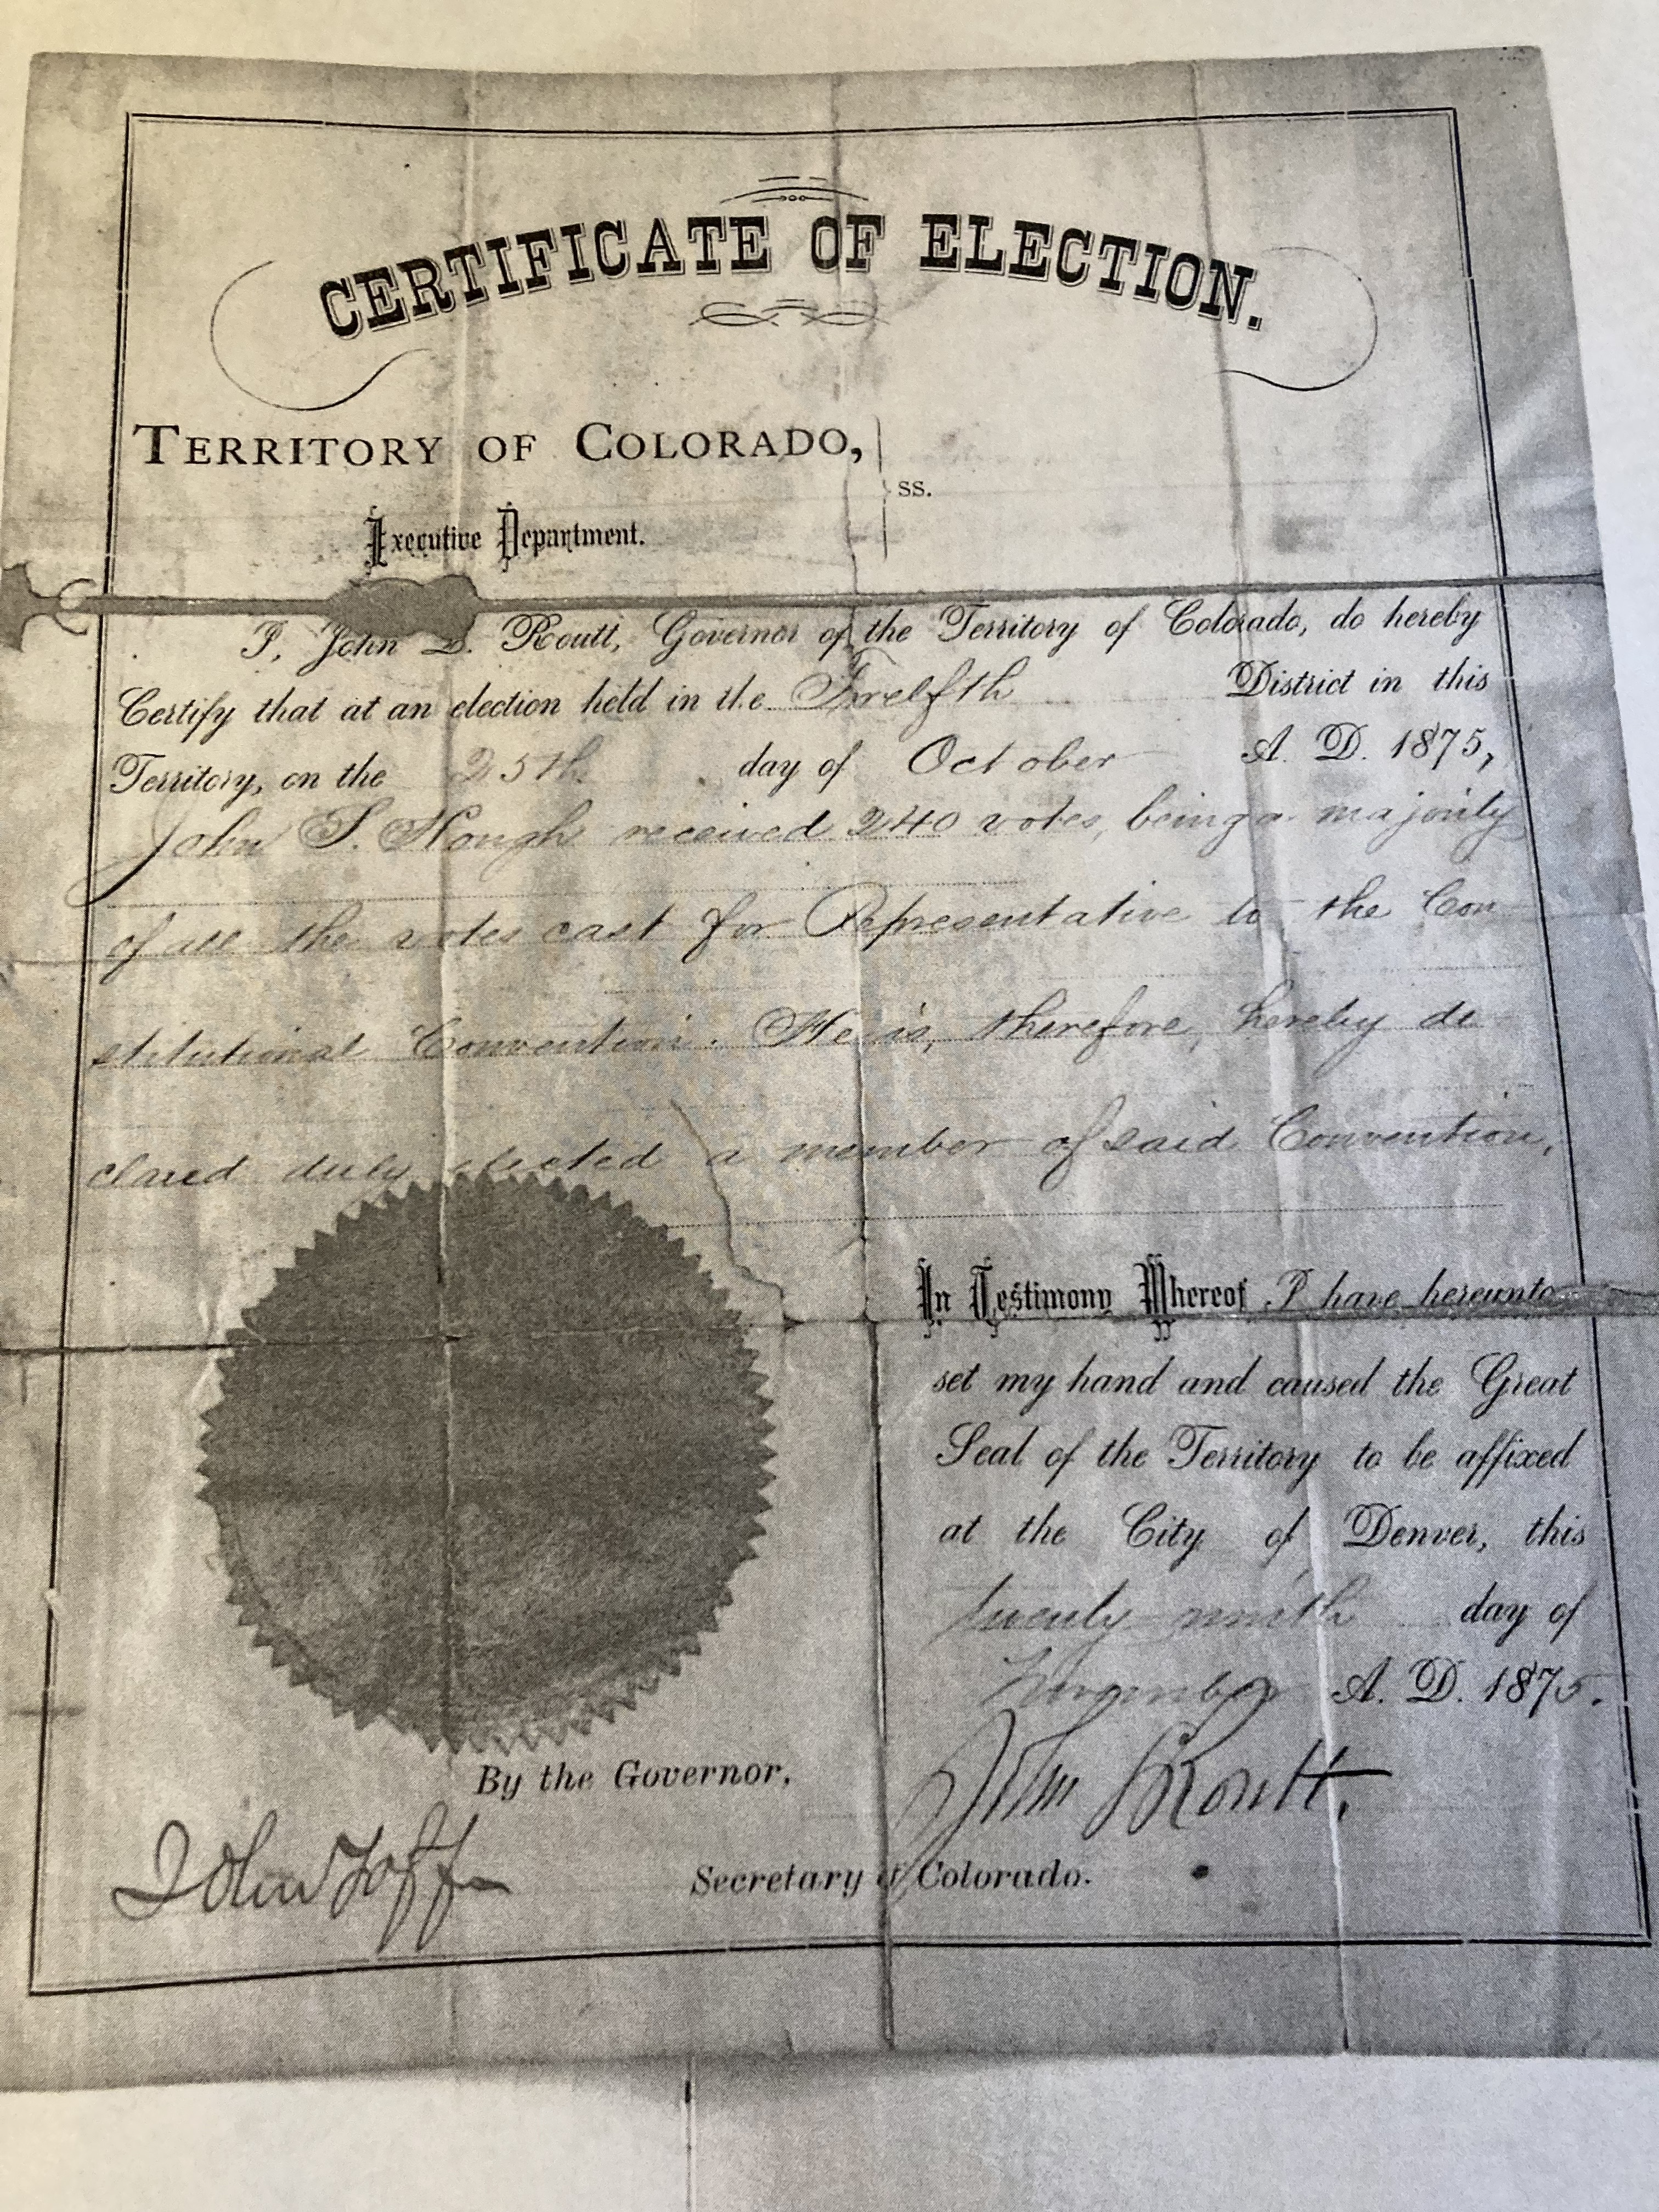 CERTIFICATE OF ELECTION.
TERRITORY OF COLORADO,
ss.
Executive Department.
I, John L. Routt, Governor of the Territory of Colorado, do hereby
Certify that at an election held in the Twelfth District in this
Territory, on the 25th day of October A. D. 1875,
John S. Hough received 240 votes, being a majority
of all the votes cast for Representative to the Con-
stitutional Convention. He is, therefore, hereby de-
clared duly elected a member of said Convention.
In Testimony Whereof I have hereunto
set my hand and caused the Great
Seal of the Territory to be affixed
at the City of Denver, this
twenty ninth day of
November A. D. 1875.
By the Governor,
John L Routt.
John Taffe
Secretary of Colorado.